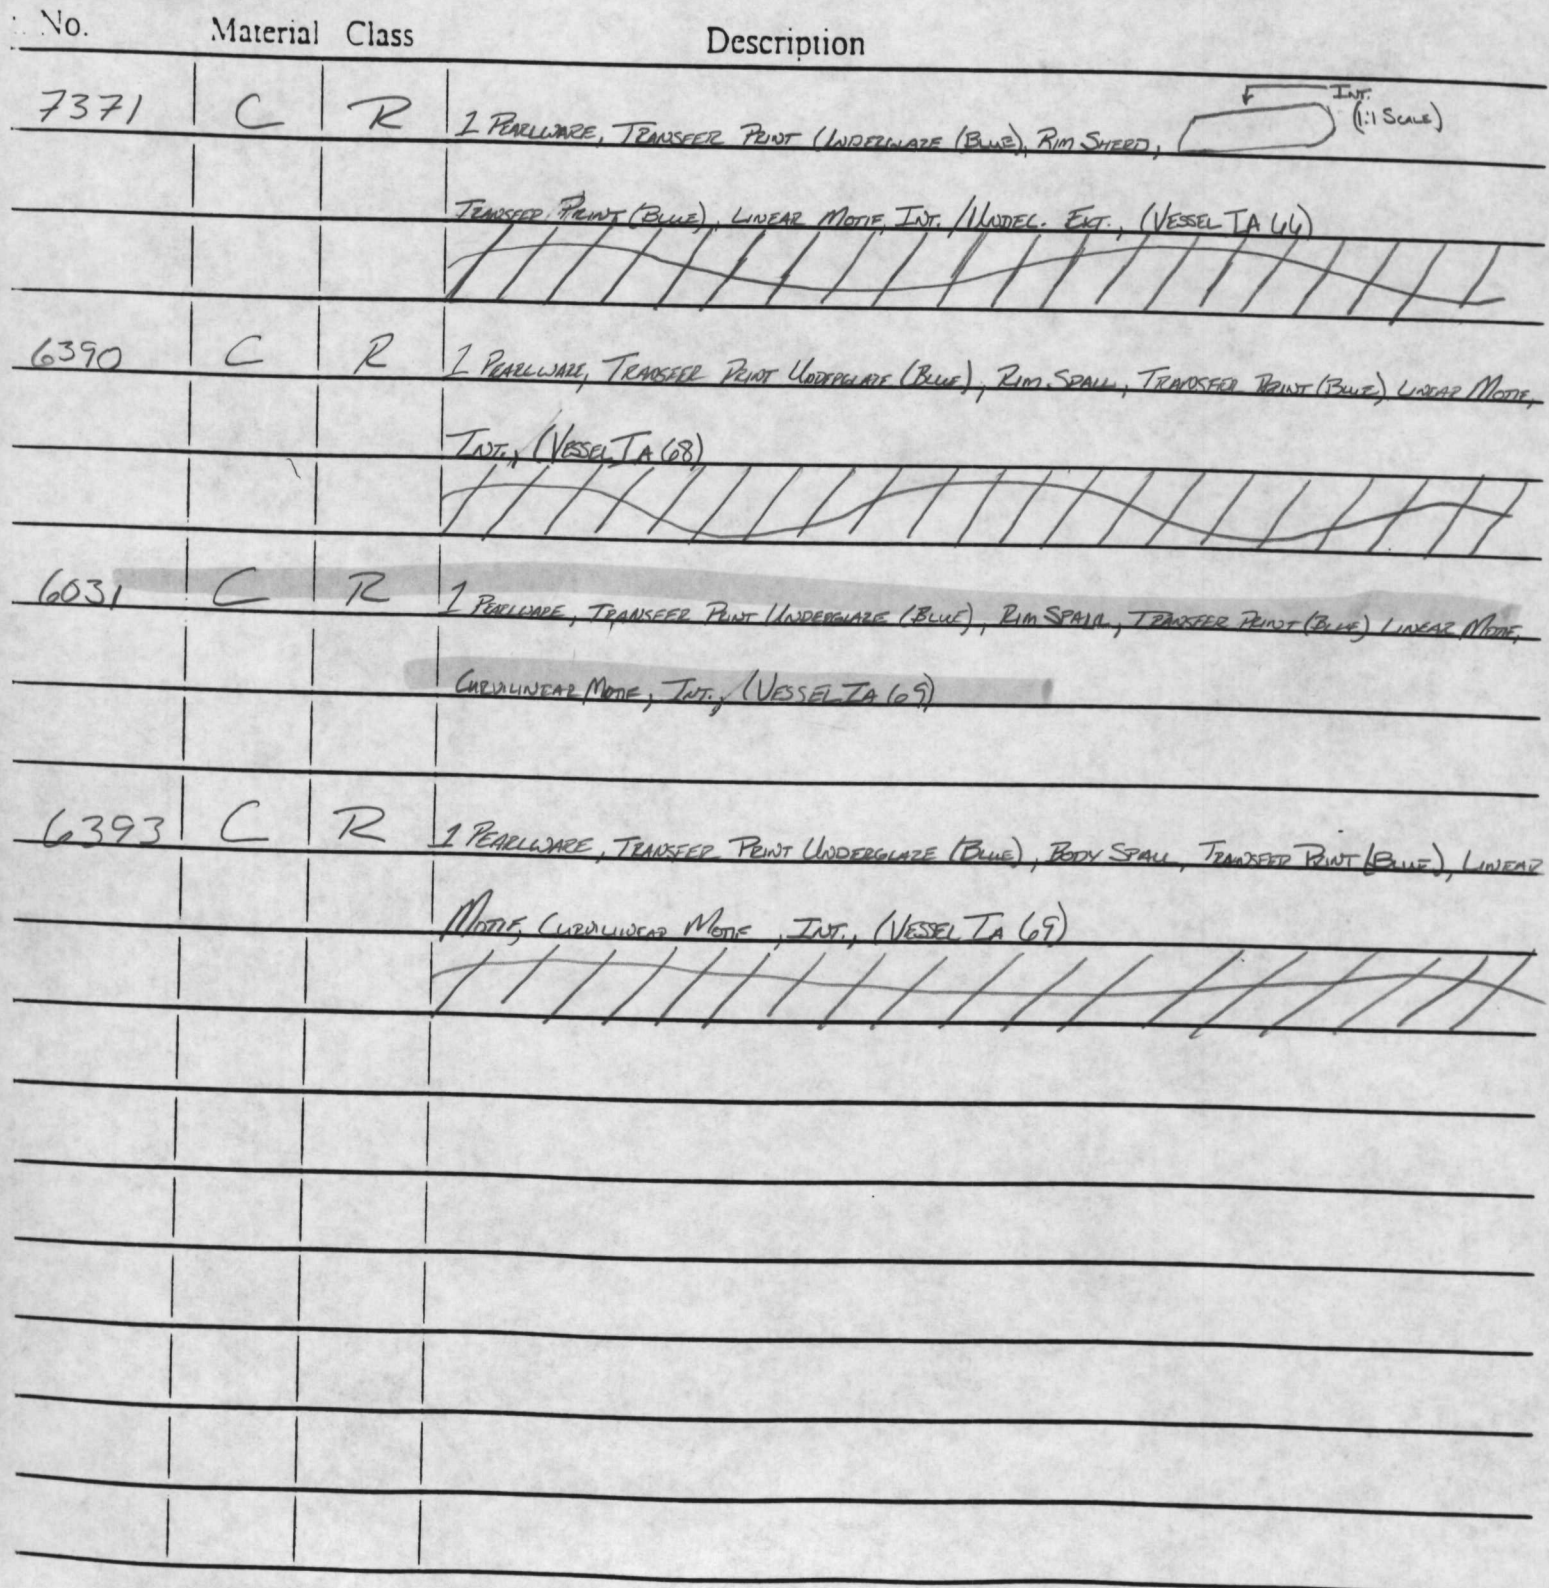 No. Material Class Description
7371 C R 1 PEARLWARE, TRANSFER PRINT UNDERGLAZE (BLUE), RIM SHERD, INT. (1:1 SCALE)
TRANSFER PRINT (BLUE), LINEAR MOTIF, INT. / UNDEC. EXT., (VESSEL IA 44)
6390 C R 1 PEARLWARE, TRANSFER PRINT UNDERGLAZE (BLUE), RIM SPALL, TRANSFER PRINT (BLUE) LINEAR MOTIF,
INT., (VESSEL IA 68)
6031 C R 1 PEARLWARE, TRANSFER PRINT UNDERGLAZE (BLUE), RIM SPALL, TRANSFER PRINT (BLUE) LINEAR MOTIF,
CURVILINEAR MOTIF, INT., (VESSEL IA 69)
6393 C R 1 PEARLWARE, TRANSFER PRINT UNDERGLAZE (BLUE), BODY SPALL, TRANSFER PRINT (BLUE), LINEAR
MOTIF, CURVILINEAR MOTIF, INT., (VESSEL IA 69)